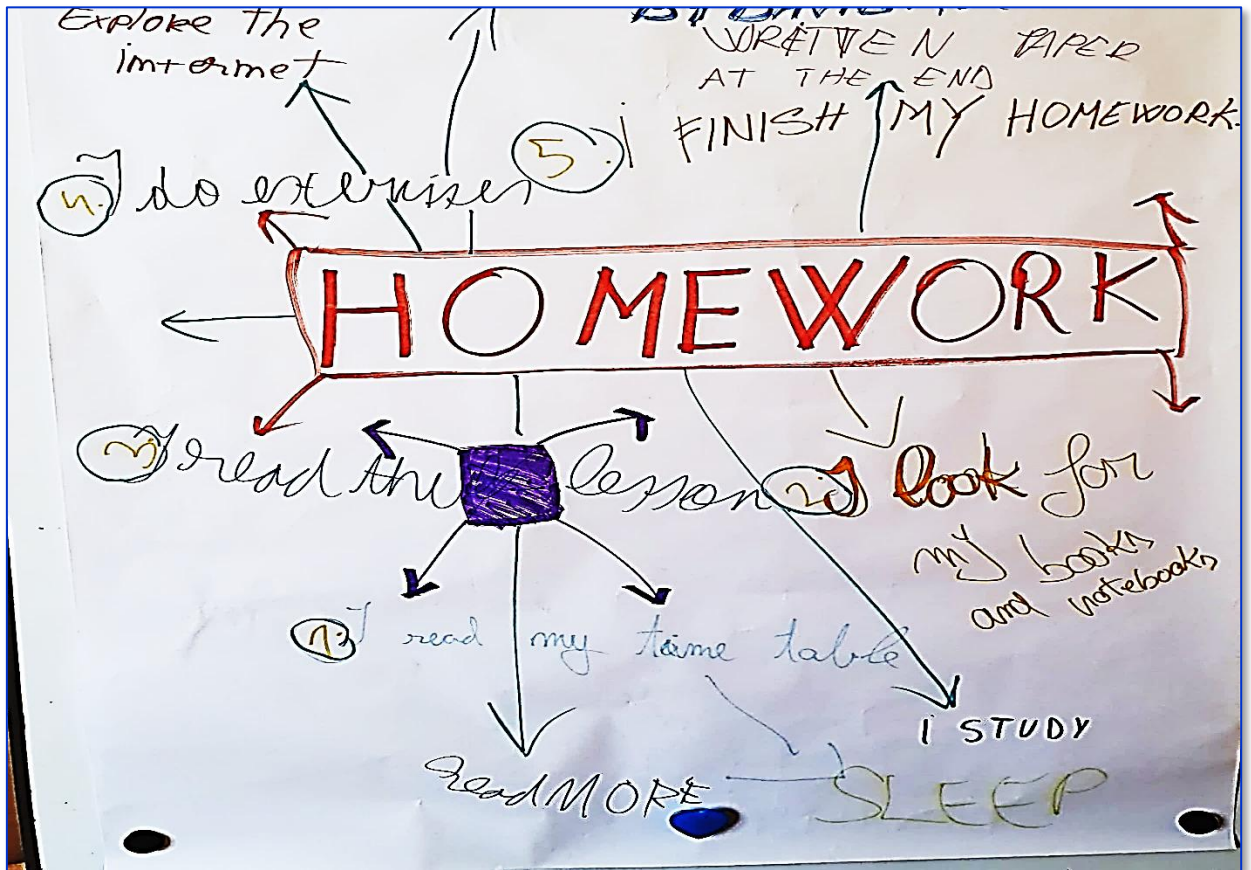 Explore The
internet
WRITTEN PAPER
AT THE END
5. I FINISH MY HOMEWORK.
4. I do exercises
HOMEWORK
3) I read the lesson
2. I look for
my books
and notebooks
1. I read my taime table
I STUDY
Read MORE
SLEEP